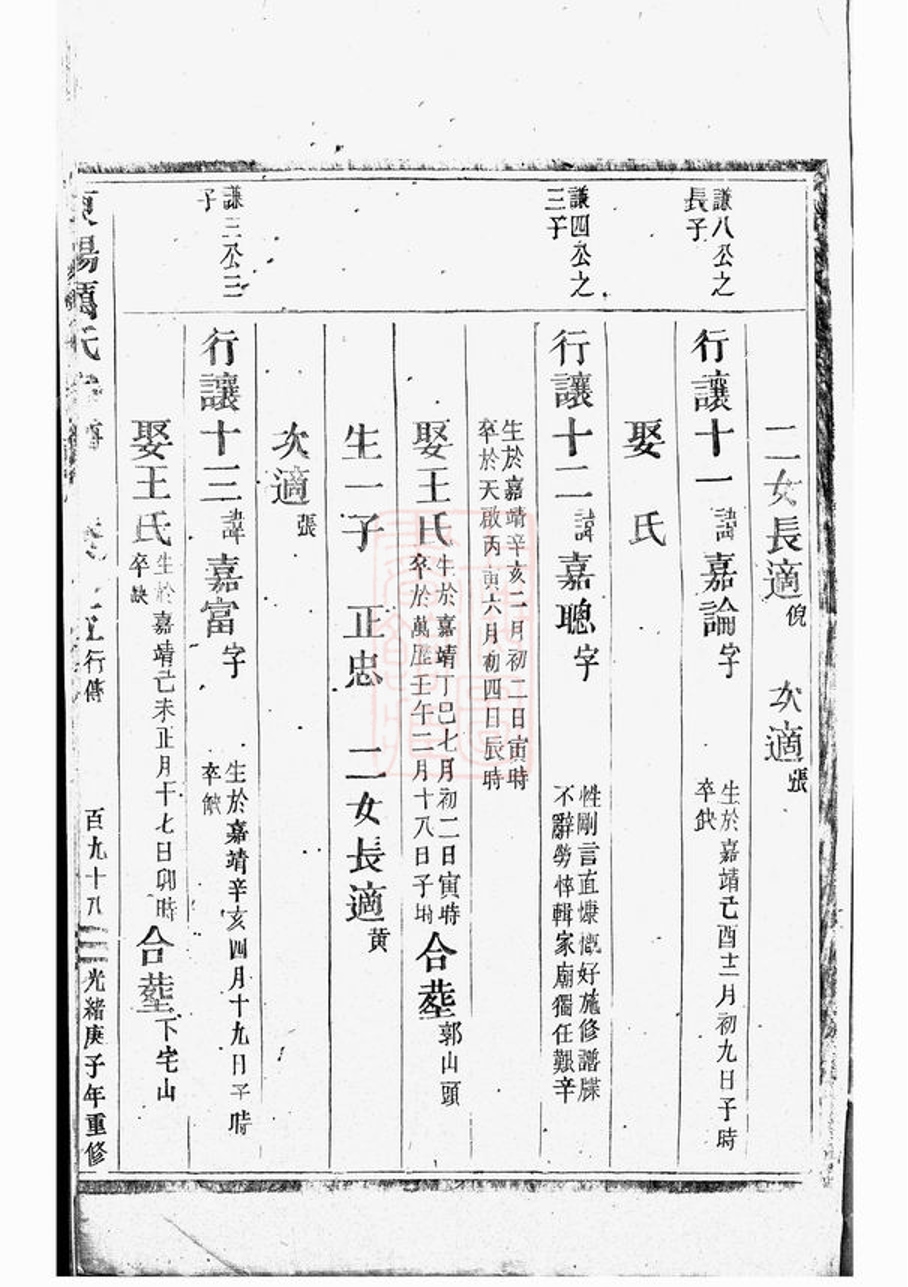 二女長適倪　次適張
謙八公之
長子
行讓十一諱嘉論字
生於嘉靖己酉十二月初九日子時
卒缺
娶　氏
謙四公之
三子
行讓十二諱嘉聰字
性剛言直慷慨好施修譜牒
不辭勞悴輯家廟獨任艱辛
生於嘉靖辛亥二月初二日寅時
卒於天啟丙寅六月初四日辰時
娶王氏
生於嘉靖丁巳七月初二日寅時
卒於萬歷壬午二月十八日子時
合塟郭山頭
生一子　正忠　二女長適黄
次適張
謙三公三
子
行讓十三諱嘉富字
生於嘉靖辛亥四月十九日子時
卒缺
娶王氏
生於嘉靖己未正月干七日卯時
卒缺
合塟下宅山
陽氏
行傳
百九十八
光緒庚子年重修